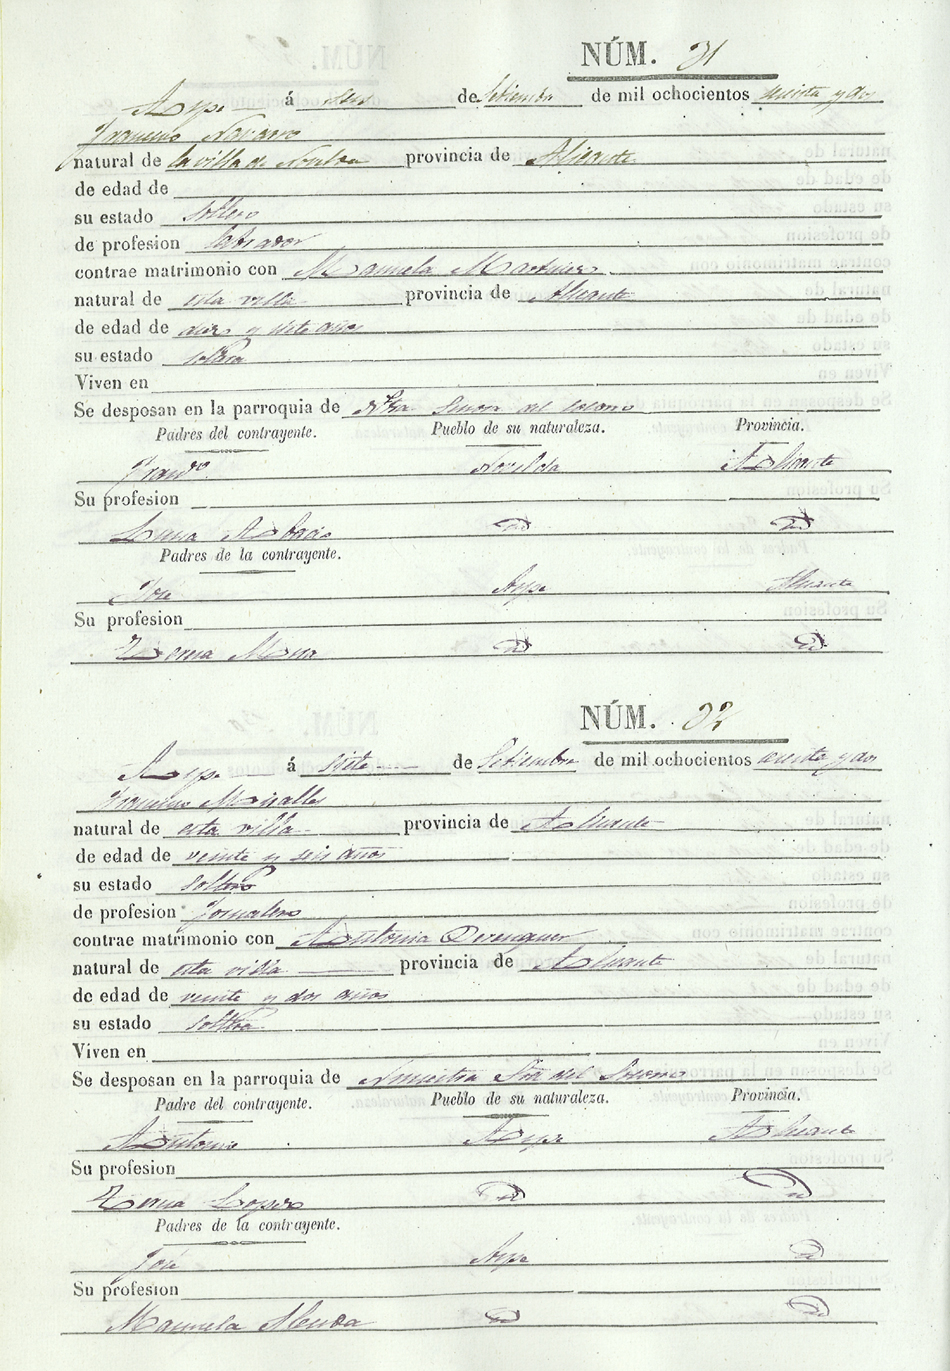 NÚM. 31
Aspe á seis de Setiembre de mil ochocientos cuarenta y dos
Francisco Navarro
natural de la villa de Novelda provincia de Alicante
de edad de
su estado soltero
de profesion labrador
contrae matrimonio con Manuela Martinez
natural de esta villa provincia de Alicante
de edad de diez y siete años
su estado soltera
Viven en
Se desposan en la parroquia de Ntra Señora del Socorro
Padres del contrayente. Pueblo de su naturaleza. Provincia.
Franco. Novelda Alicante
Su profesion
Abad Id Id
Padres de la contrayente.
José Aspe Alicante
Su profesion
Teresa Mira Id Id
NÚM. 32
Aspe á siete de Setiembre de mil ochocientos cuarenta y dos
Francisco Miralles
natural de esta villa provincia de Alicante
de edad de veinte y seis años
su estado soltero
de profesion Jornalero
contrae matrimonio con Antonia Berenguer
natural de esta villa provincia de Alicante
de edad de veinte y dos años
su estado soltera
Viven en
Se desposan en la parroquia de Nuestra Sra del Socorro
Padre del contrayente. Pueblo de su naturaleza. Provincia.
Antonio Aspe Alicante
Su profesion
Teresa Lopez Id Id
Padres de la contrayente.
José Aspe Id
Su profesion
Manuela Id Id